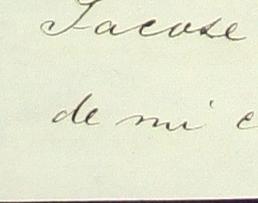 Sacose
de mi c